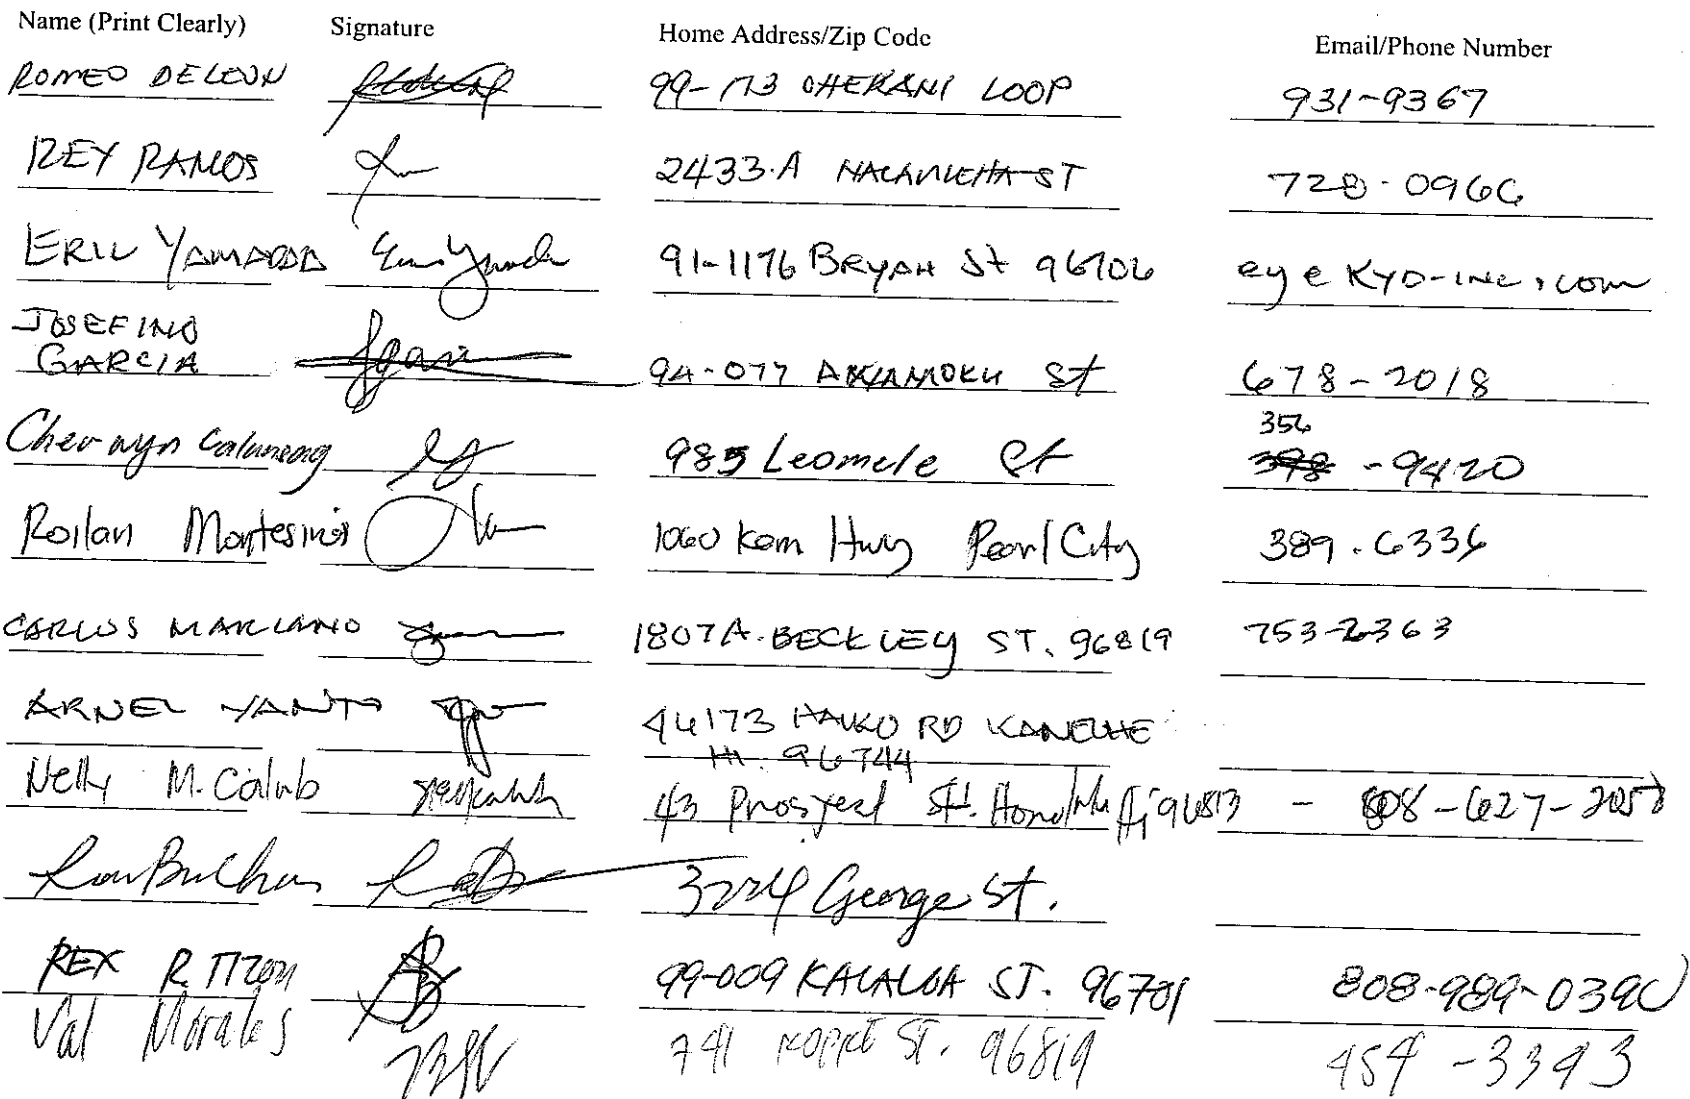 Name (Print Clearly) Signature Home Address/Zip Code Email/Phone Number
ROMEO DELEON 99-173 OHEKANI LOOP 931-9367
REY RAMOS 2433-A ST 728-0966
ERIC YAMADA 91-1176 BRYAN St 96706 ey@KYO-INC.COM
JOSEFINO
GARCIA 94-077 AWAMOKU St 678-2018
356
Cherwyn 985 Leomele St 398 -9420
Roilan Montesinos 1060 Kam Hwy Pearl City 389-6336
CARLOS MARIANO 1807A. BECKLEY ST. 96819 753-2363
ARNEL YANTO 44173 HAIKU RD KANEOHE
HI. 96744
Nelly M. Calub 43 Prospect St. Honolulu Hi 96813 - 808-627-2058
3224 George St.
REX R. TIZON 99-009 KALALOA ST. 96701 808-989-0390
Val Morales 741 ST. 96819 454-3393